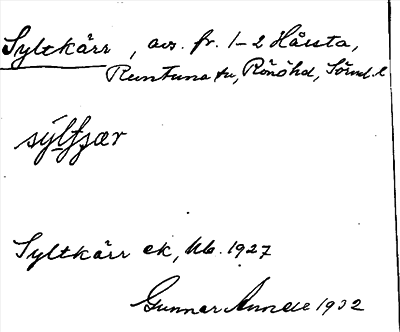 Syltkärr, avs. fr. 1-2 Håsta,
Runtuna sn, Rönöhd, Sörml. l
sy̆ltꞩær
Syltkärr ek, Ub. 1927
Gunnar Annell 1932